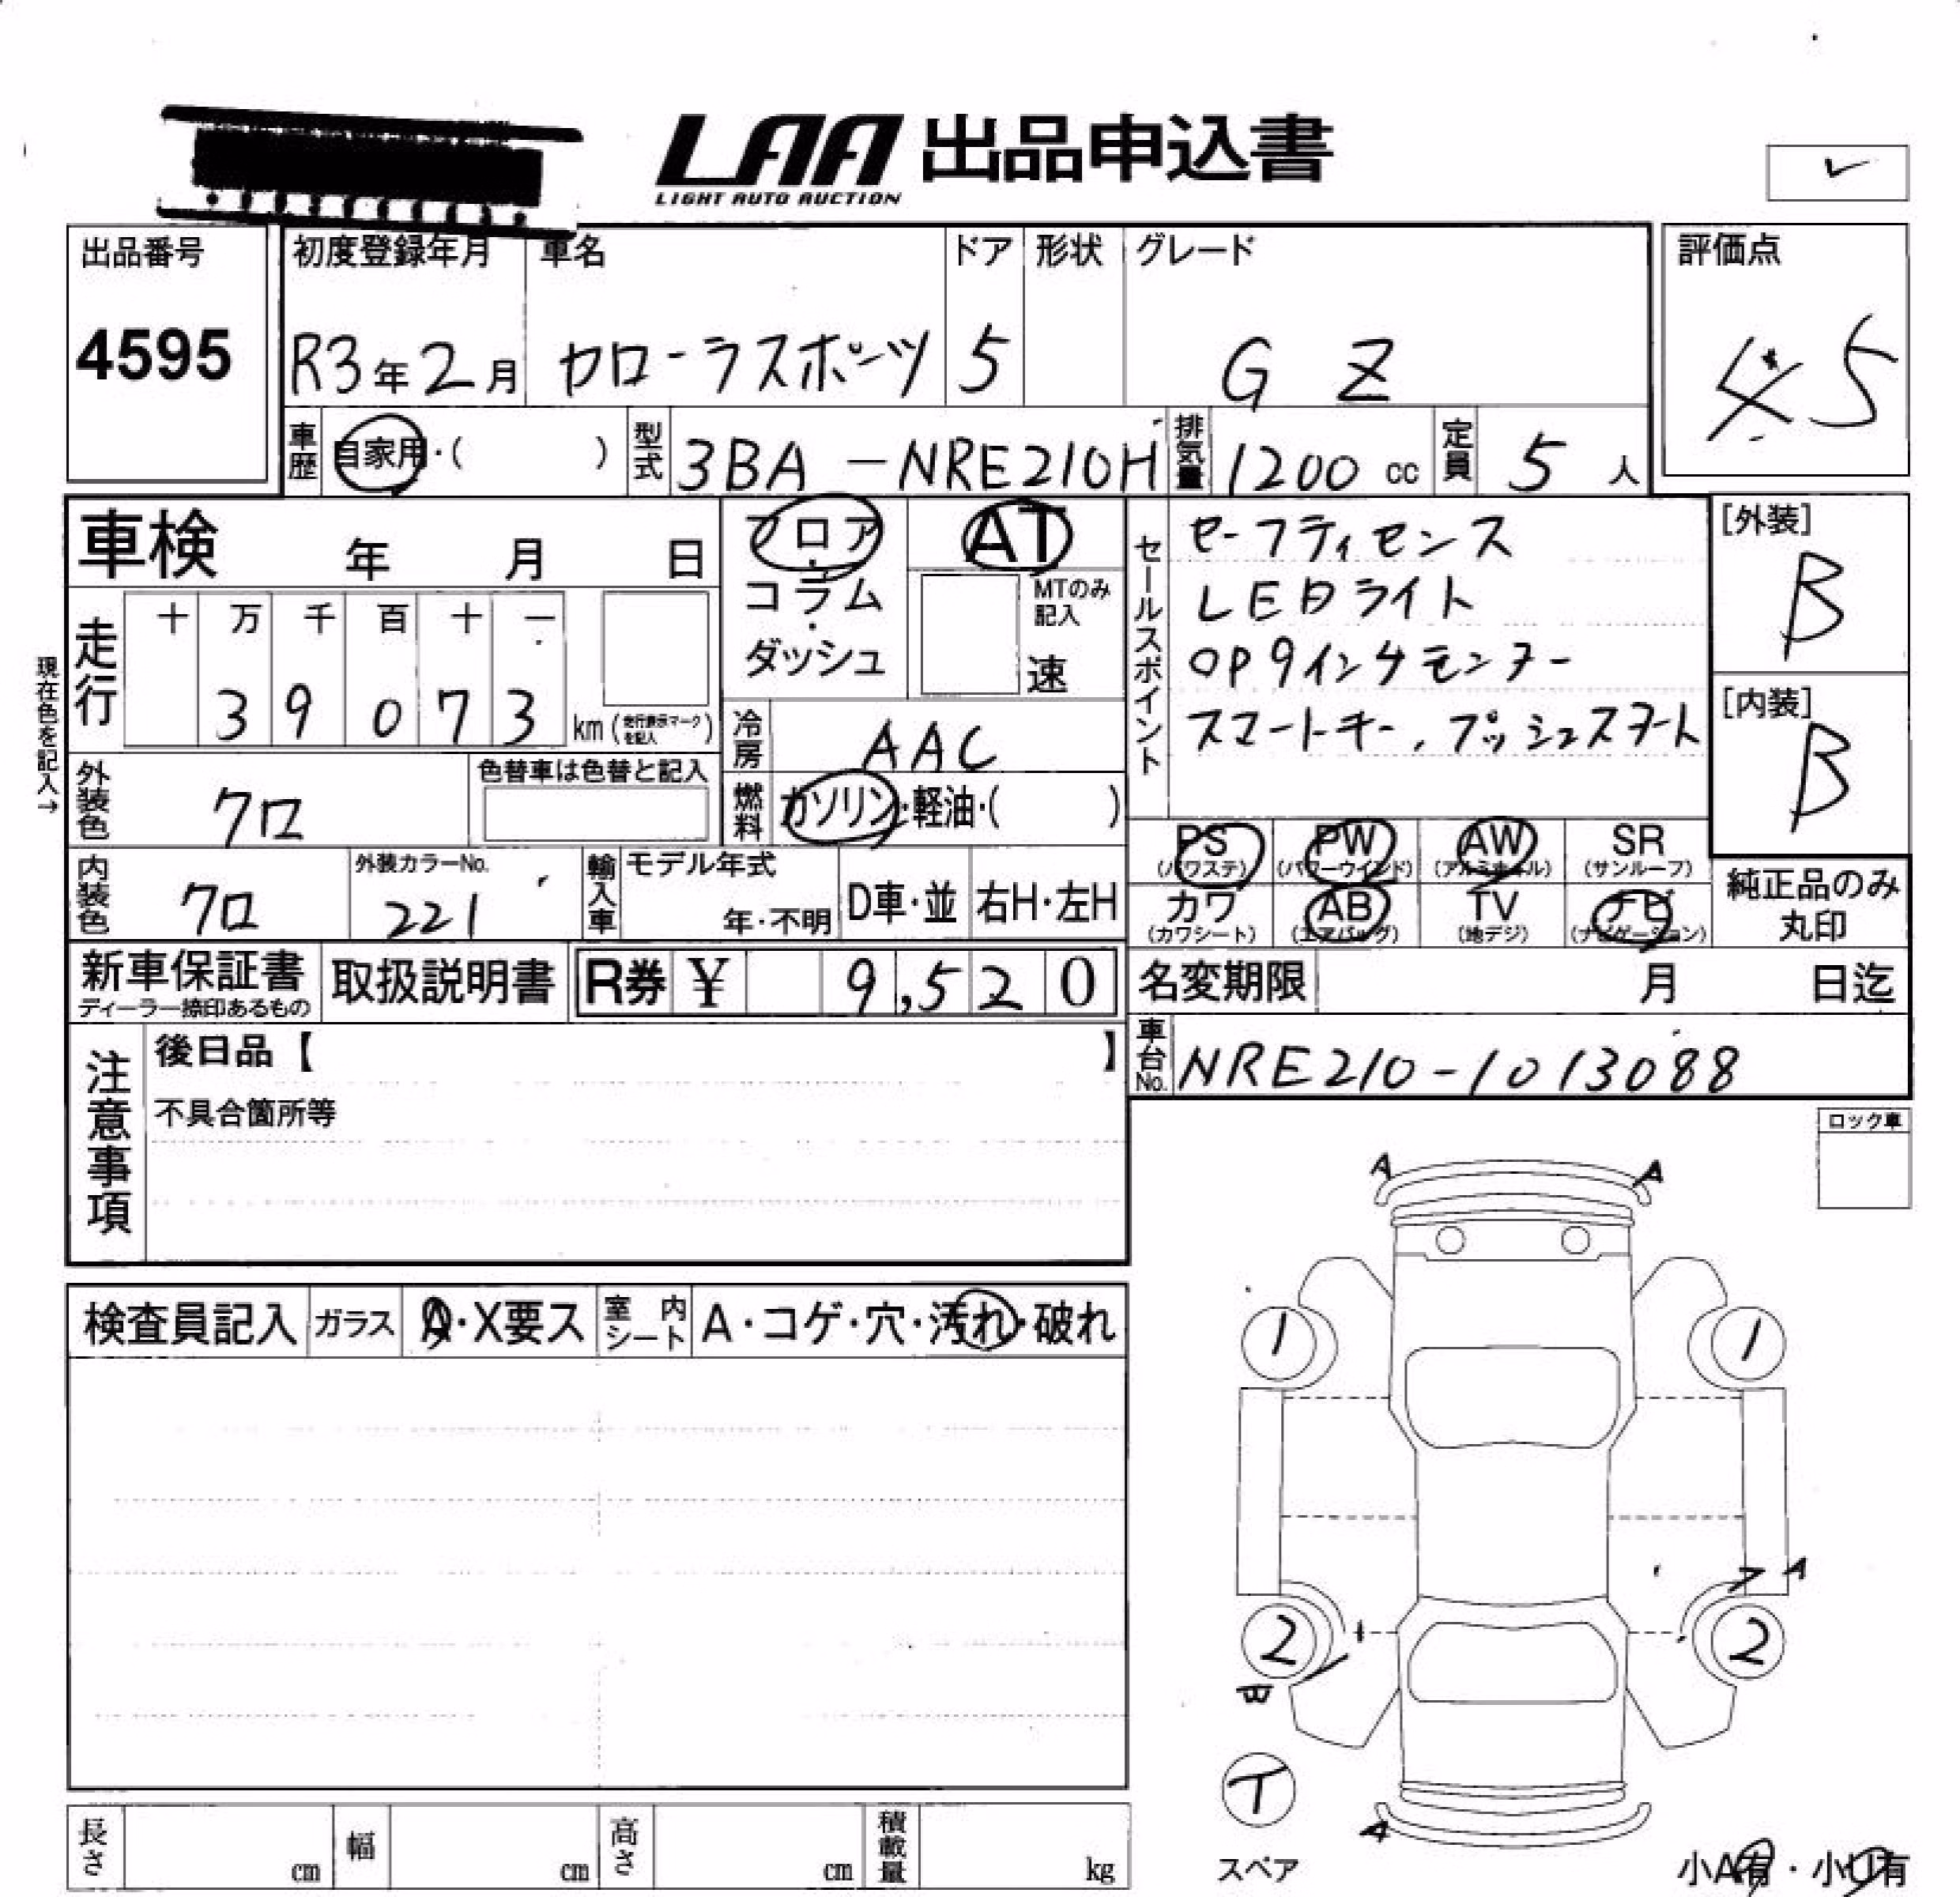 LAA 出品申込書
LIGHT AUTO AUCTION
出品番号 初度登録年月 車名 ドア 形状 グレード 評価点
4595 R3年2月 カローラスポーツ 5 G Z 4.5
車歴 自家用・( ) 型式 3BA-NRE210H 排気量 1200 cc 定員 5 人
車検 年 月 日
フロア・コラム・ダッシュ
AT
MTのみ記入
速
セールスポイント
セーフティセンス
LEDライト
OP9インチモニター
スマートキー、プッシュスタート
[外装]
B
[内装]
B
現在色を記入→
走行
十 万 千 百 十 一
3 9 0 7 3 km (走行表示マークを記入)
冷房 AAC
外装色 クロ 色替車は色替と記入
燃料 ガソリン・軽油・( )
内装色 クロ 外装カラーNo. 221
輸入車 モデル年式 年・不明 D車・並 右H・左H
PS (パワステ) PW (パワーウインド) AW (アルミホイル) SR (サンルーフ)
カワ (カワシート) AB (エアバッグ) TV (地デジ) ナビ (ナビゲーション)
純正品のみ丸印
新車保証書 ディーラー捺印あるもの 取扱説明書 R券 ¥ 9,520
名変期限 月 日迄
車台No. NRE210-1013088
注意事項
後日品【 】
不具合箇所等
ロック車
検査員記入 ガラス A・X要ス 室内シート A・コゲ・穴・汚れ・破れ
A A
1 1
A
2 2
B
T
A
スペア
小A有・小U有
長さ cm 幅 cm 高さ cm 積載量 kg